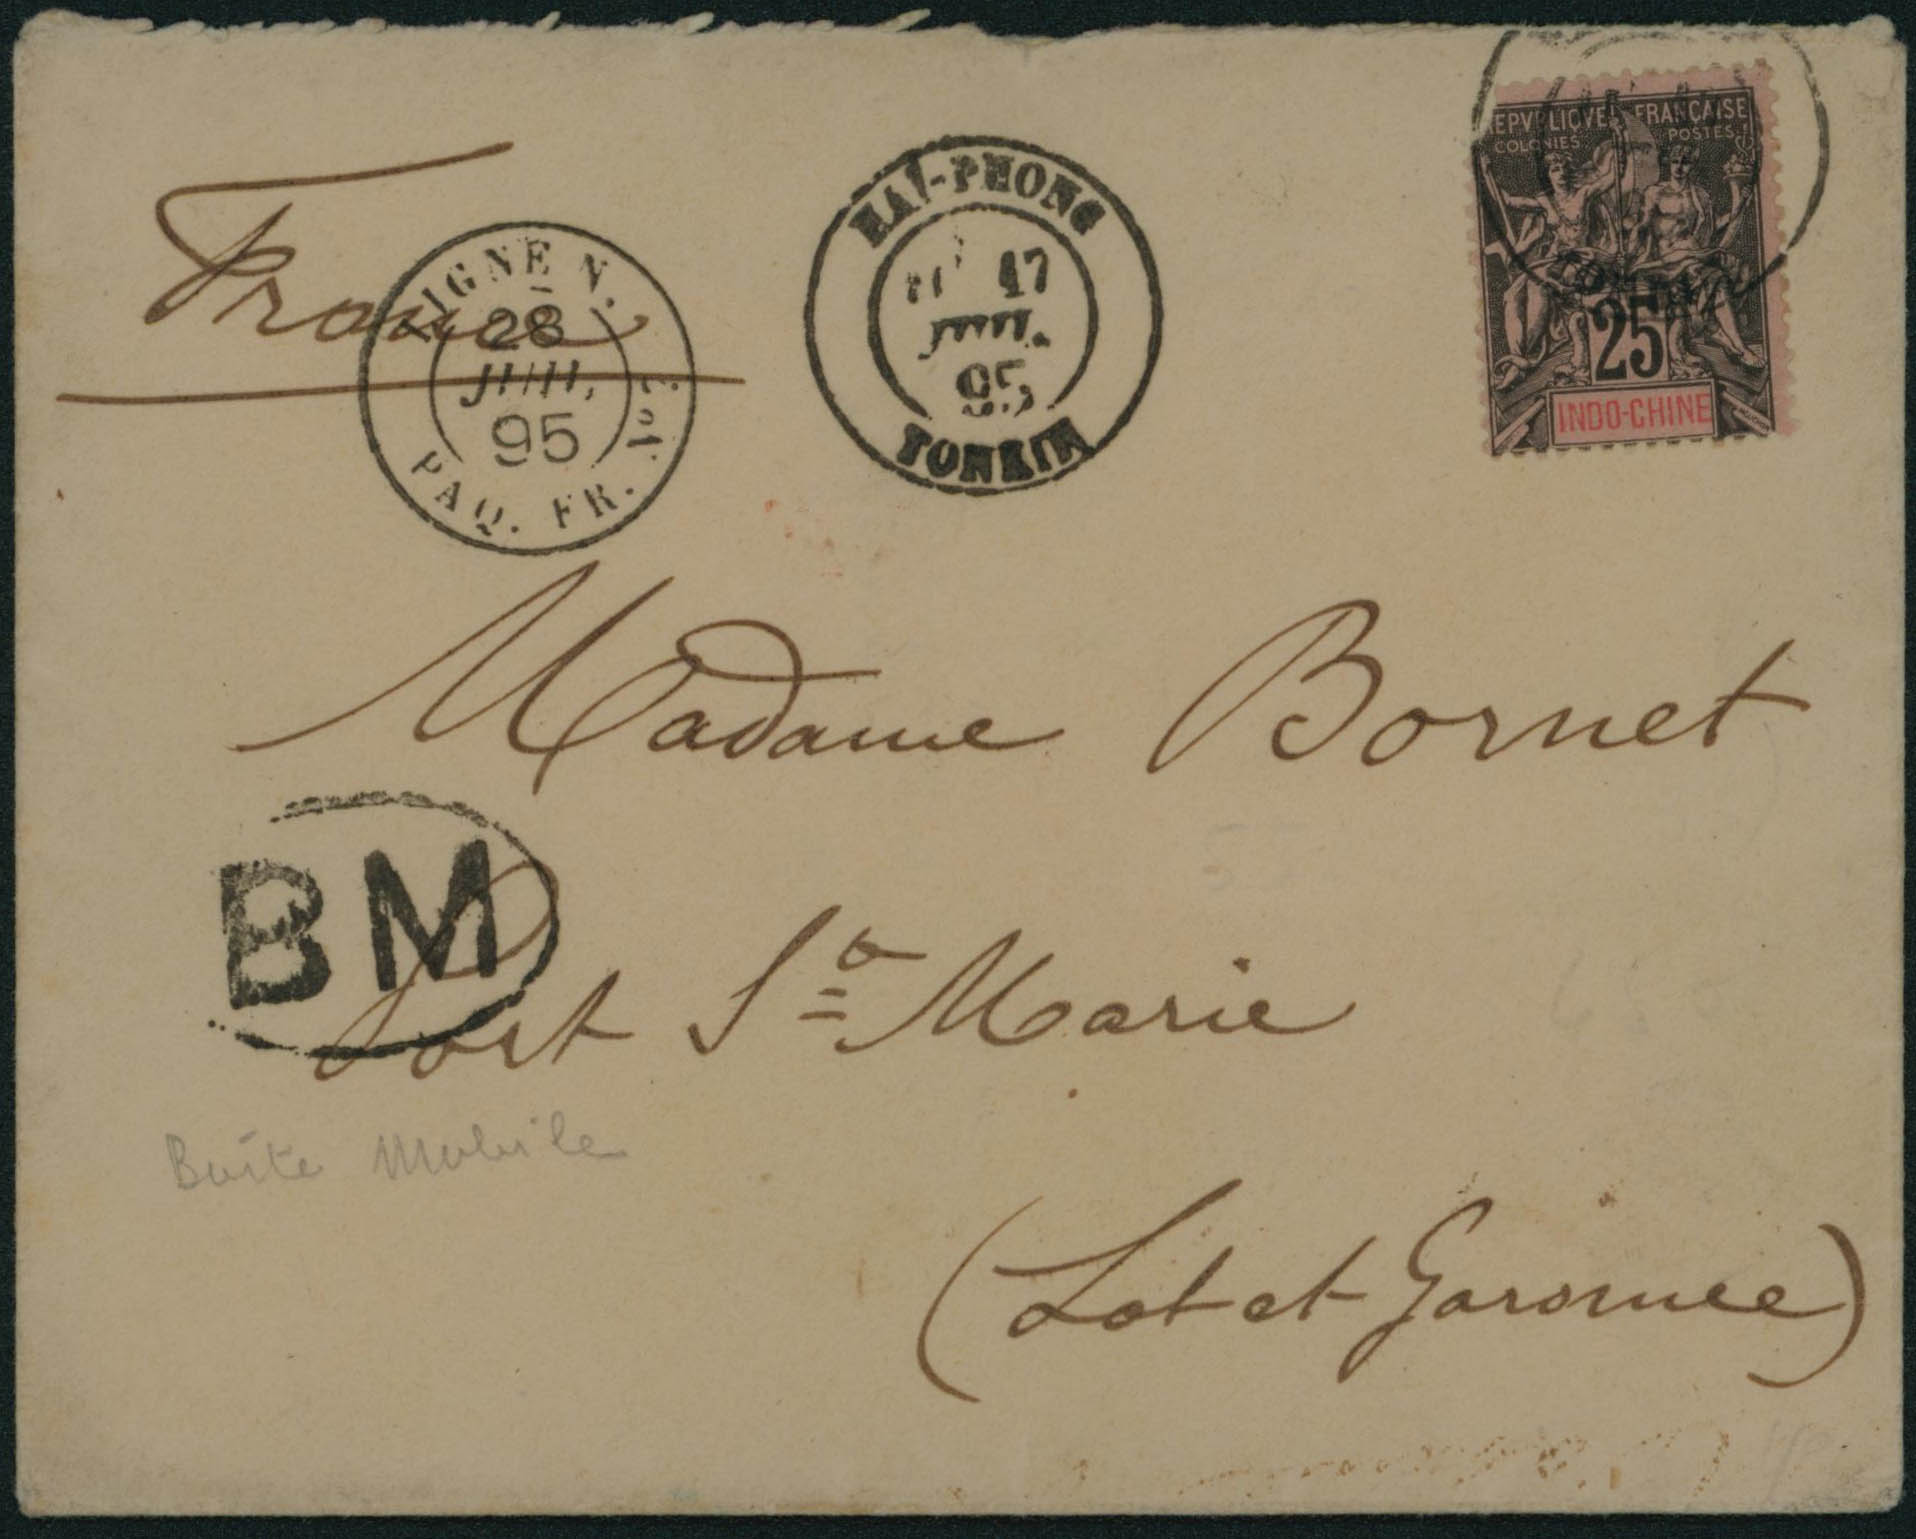 France
LIGNE N.
28
JUIL.
95
PAQ. FR. No. 2
HAI-PHONG
17
JUIL.
95
TONKIN
REPVBLIQVE FRANÇAISE
COLONIES POSTES
25
INDO-CHINE
Madame Bornet
BM
Port Ste Marie
Boite Mobile
(Lot et Garonne)